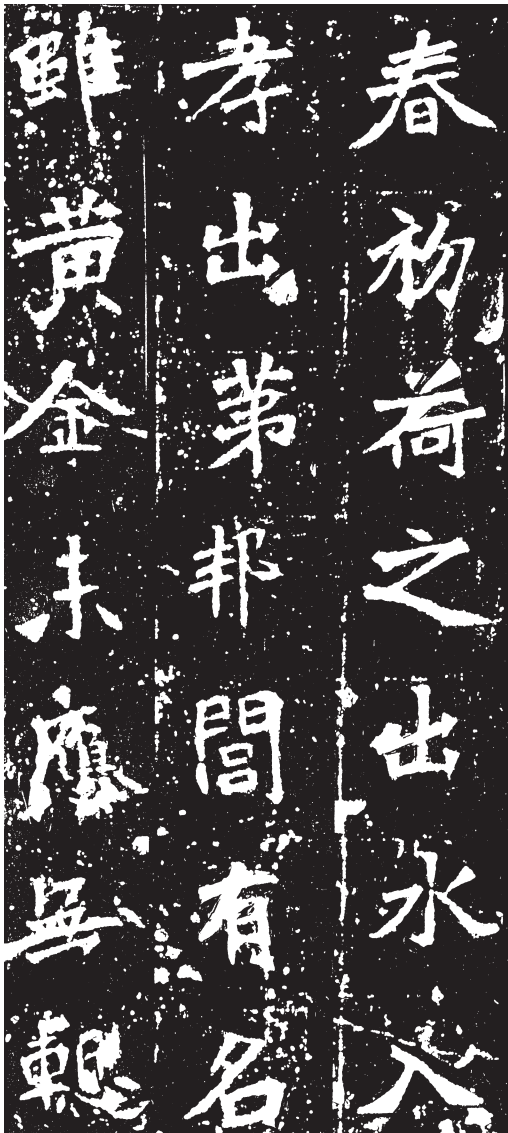 春初荷之出水入
孝出第邦閭有名
雖黃金未應無